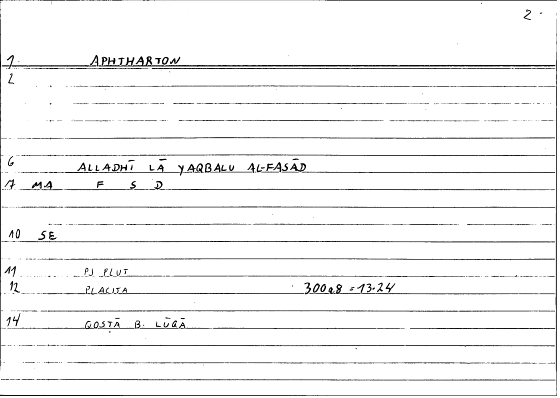 2.
1 APHTHARTON
2
6 ALLADHĪ LĀ YAQBALU AL-FASĀD
17 MA F S D
10 SE
11 PJ PLUT
12 PLACITA 300a8 = 13.24
14 QOSṬĀ B. LŪQĀ